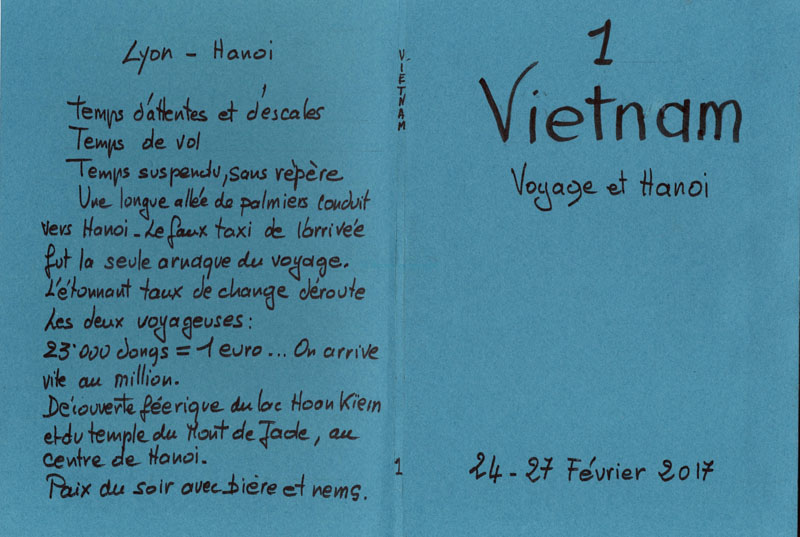 Lyon - Hanoi
Temps d'attentes et d'escales
Temps de vol
Temps suspendu, sans répère
Une longue allée de palmiers conduit
vers Hanoi - Le faux taxi de l'arrivée
fut la seule arnaque du voyage.
L'étonnant taux de change déroute
Les deux voyageuses :
23'000 dongs = 1 euro ... On arrive
vite au million.
Découverte féerique du lac Hoan Kiem
et du temple du Mont de Jade, au
centre de Hanoi.
Paix du soir avec bière et nems.
VIETNAM
1
1
Vietnam
Voyage et Hanoi
24 - 27 Février 2017